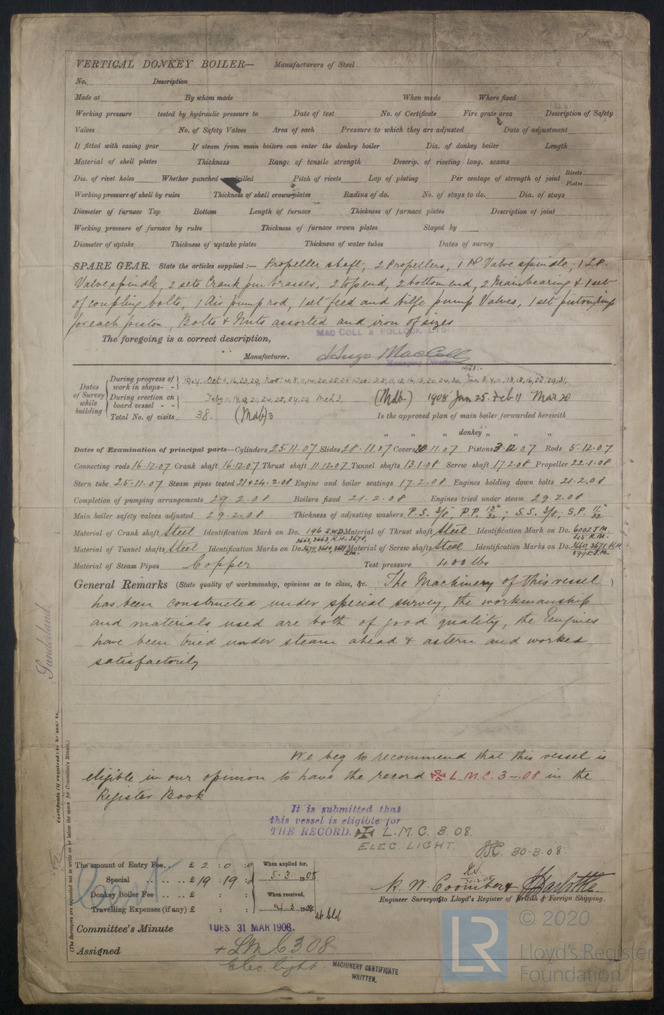 VERTICAL DONKEY BOILER— Manufacturers of Steel
No. Description
Made at By whom made When made Where fixed
Working pressure tested by hydraulic pressure to Date of test No. of Certificate Fire grate area Description of Safety
Valves No. of Safety Valves Area of each Pressure to which they are adjusted Date of adjustment
If fitted with easing gear If steam from main boilers can enter the donkey boiler Dia. of donkey boiler Length
Material of shell plates Thickness Range of tensile strength Descrip. of riveting long. seams
Dia. of rivet holes Whether punched or drilled Pitch of rivets Lap of plating Per centage of strength of joint Rivets Plates
Working pressure of shell by rules Thickness of shell crown plates Radius of do. No. of stays to do. Dia. of stays
Diameter of furnace Top Bottom Length of furnace Thickness of furnace plates Description of joint
Working pressure of furnace by rules Thickness of furnace crown plates Stayed by
Diameter of uptake Thickness of uptake plates Thickness of water tubes Dates of survey
SPARE GEAR. State the articles supplied:— Propeller shaft, 2 Propellers, 1 HP Valve spindle, 1 LP
Valve spindle, 2 sets Crank pin brasses, 2 top end, 2 bottom end, 2 Main bearing & 1 set
of coupling bolts, 1 Air pump rod, 1 set feed and bilge pump Valves, 1 set piston rings
for each piston, Bolts & Nuts assorted and iron of sizes
The foregoing is a correct description,
MAC COLL & POLLOCK LTD
Manufacturer. Hugo MacColl
Dates of Survey while building
During progress of work in shops - -
During erection on board vessel - - (Mdb) 1908 Jan 25. Feb 11 Mar 20
Total No. of visits 38. (Mdb) 3 Is the approved plan of main boiler forwarded herewith
" " " donkey " " "
Dates of Examination of principal parts—Cylinders 25-11-07 Slides 28-11-07 Covers 20-11-07 Pistons 3-12-07 Rods 5-12-07
Connecting rods 16-12-07 Crank shaft 16-12-07 Thrust shaft 11-12-07 Tunnel shafts 13-1-08 Screw shaft 17-2-08 Propeller 22-1-08
Stern tube 25-11-07 Steam pipes tested 21 & 24-2-08 Engine and boiler seatings 17-2-08 Engines holding down bolts 21-2-08
Completion of pumping arrangements 29-2-08 Boilers fixed 21-2-08 Engines tried under steam 29-2-08
Main boiler safety valves adjusted 29-2-08 Thickness of adjusting washers
Material of Crank shaft Steel Identification Mark on Do. Material of Thrust shaft Steel Identification Mark on Do.
Material of Tunnel shafts Steel Identification Marks on Do. Material of Screw shafts Steel Identification Marks on Do.
Material of Steam Pipes Copper Test pressure 400 lbs
General Remarks (State quality of workmanship, opinions as to class, &c. The Machinery of this vessel
has been constructed under special survey, the workmanship
and materials used are both of good quality, the Engines
have been tried under steam ahead & astern and worked
satisfactorily
Sunderland
We beg to recommend that this vessel is
eligible in our opinion to have the record ✠ L.M.C. 3-08 in the
Register Book
It is submitted that
this vessel is eligible for
THE RECORD. ✠ L.M.C. 3.08.
ELEC LIGHT.
30-3-08
The amount of Entry Fee... £ 2 : 0 : When applied for,
Special ... £ 19 : 19 : 5-3-1908
Donkey Boiler Fee ... £ : : When received,
Travelling Expenses (if any) £ : :
K. W. Coomber &
Engineer Surveyors to Lloyd's Register of British & Foreign Shipping.
Committee's Minute TUES. 31 MAR 1908
Assigned + LMC 3 08
Elec. light.
MACHINERY CERTIFICATE
WRITTEN.
LR
© 2020
Lloyd's Register
Foundation